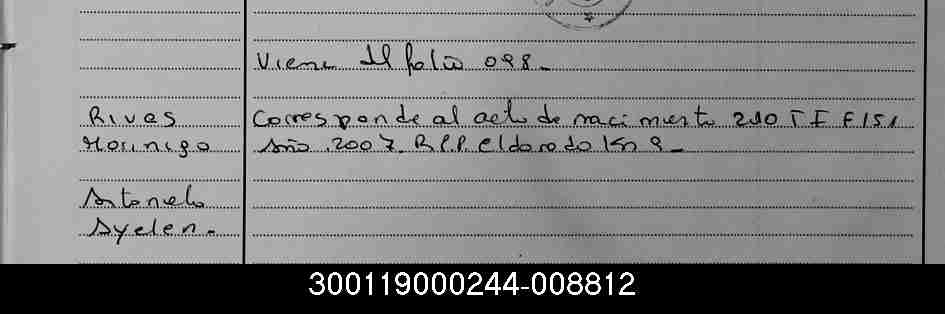 Viene del folio 098.
Rivas Corresponde al acto de nacimiento 210 T I F 151
Morinigo Año 2007. R.P.P. Eldorado Km 9.
Antonela
Ayelen.
300119000244-008812